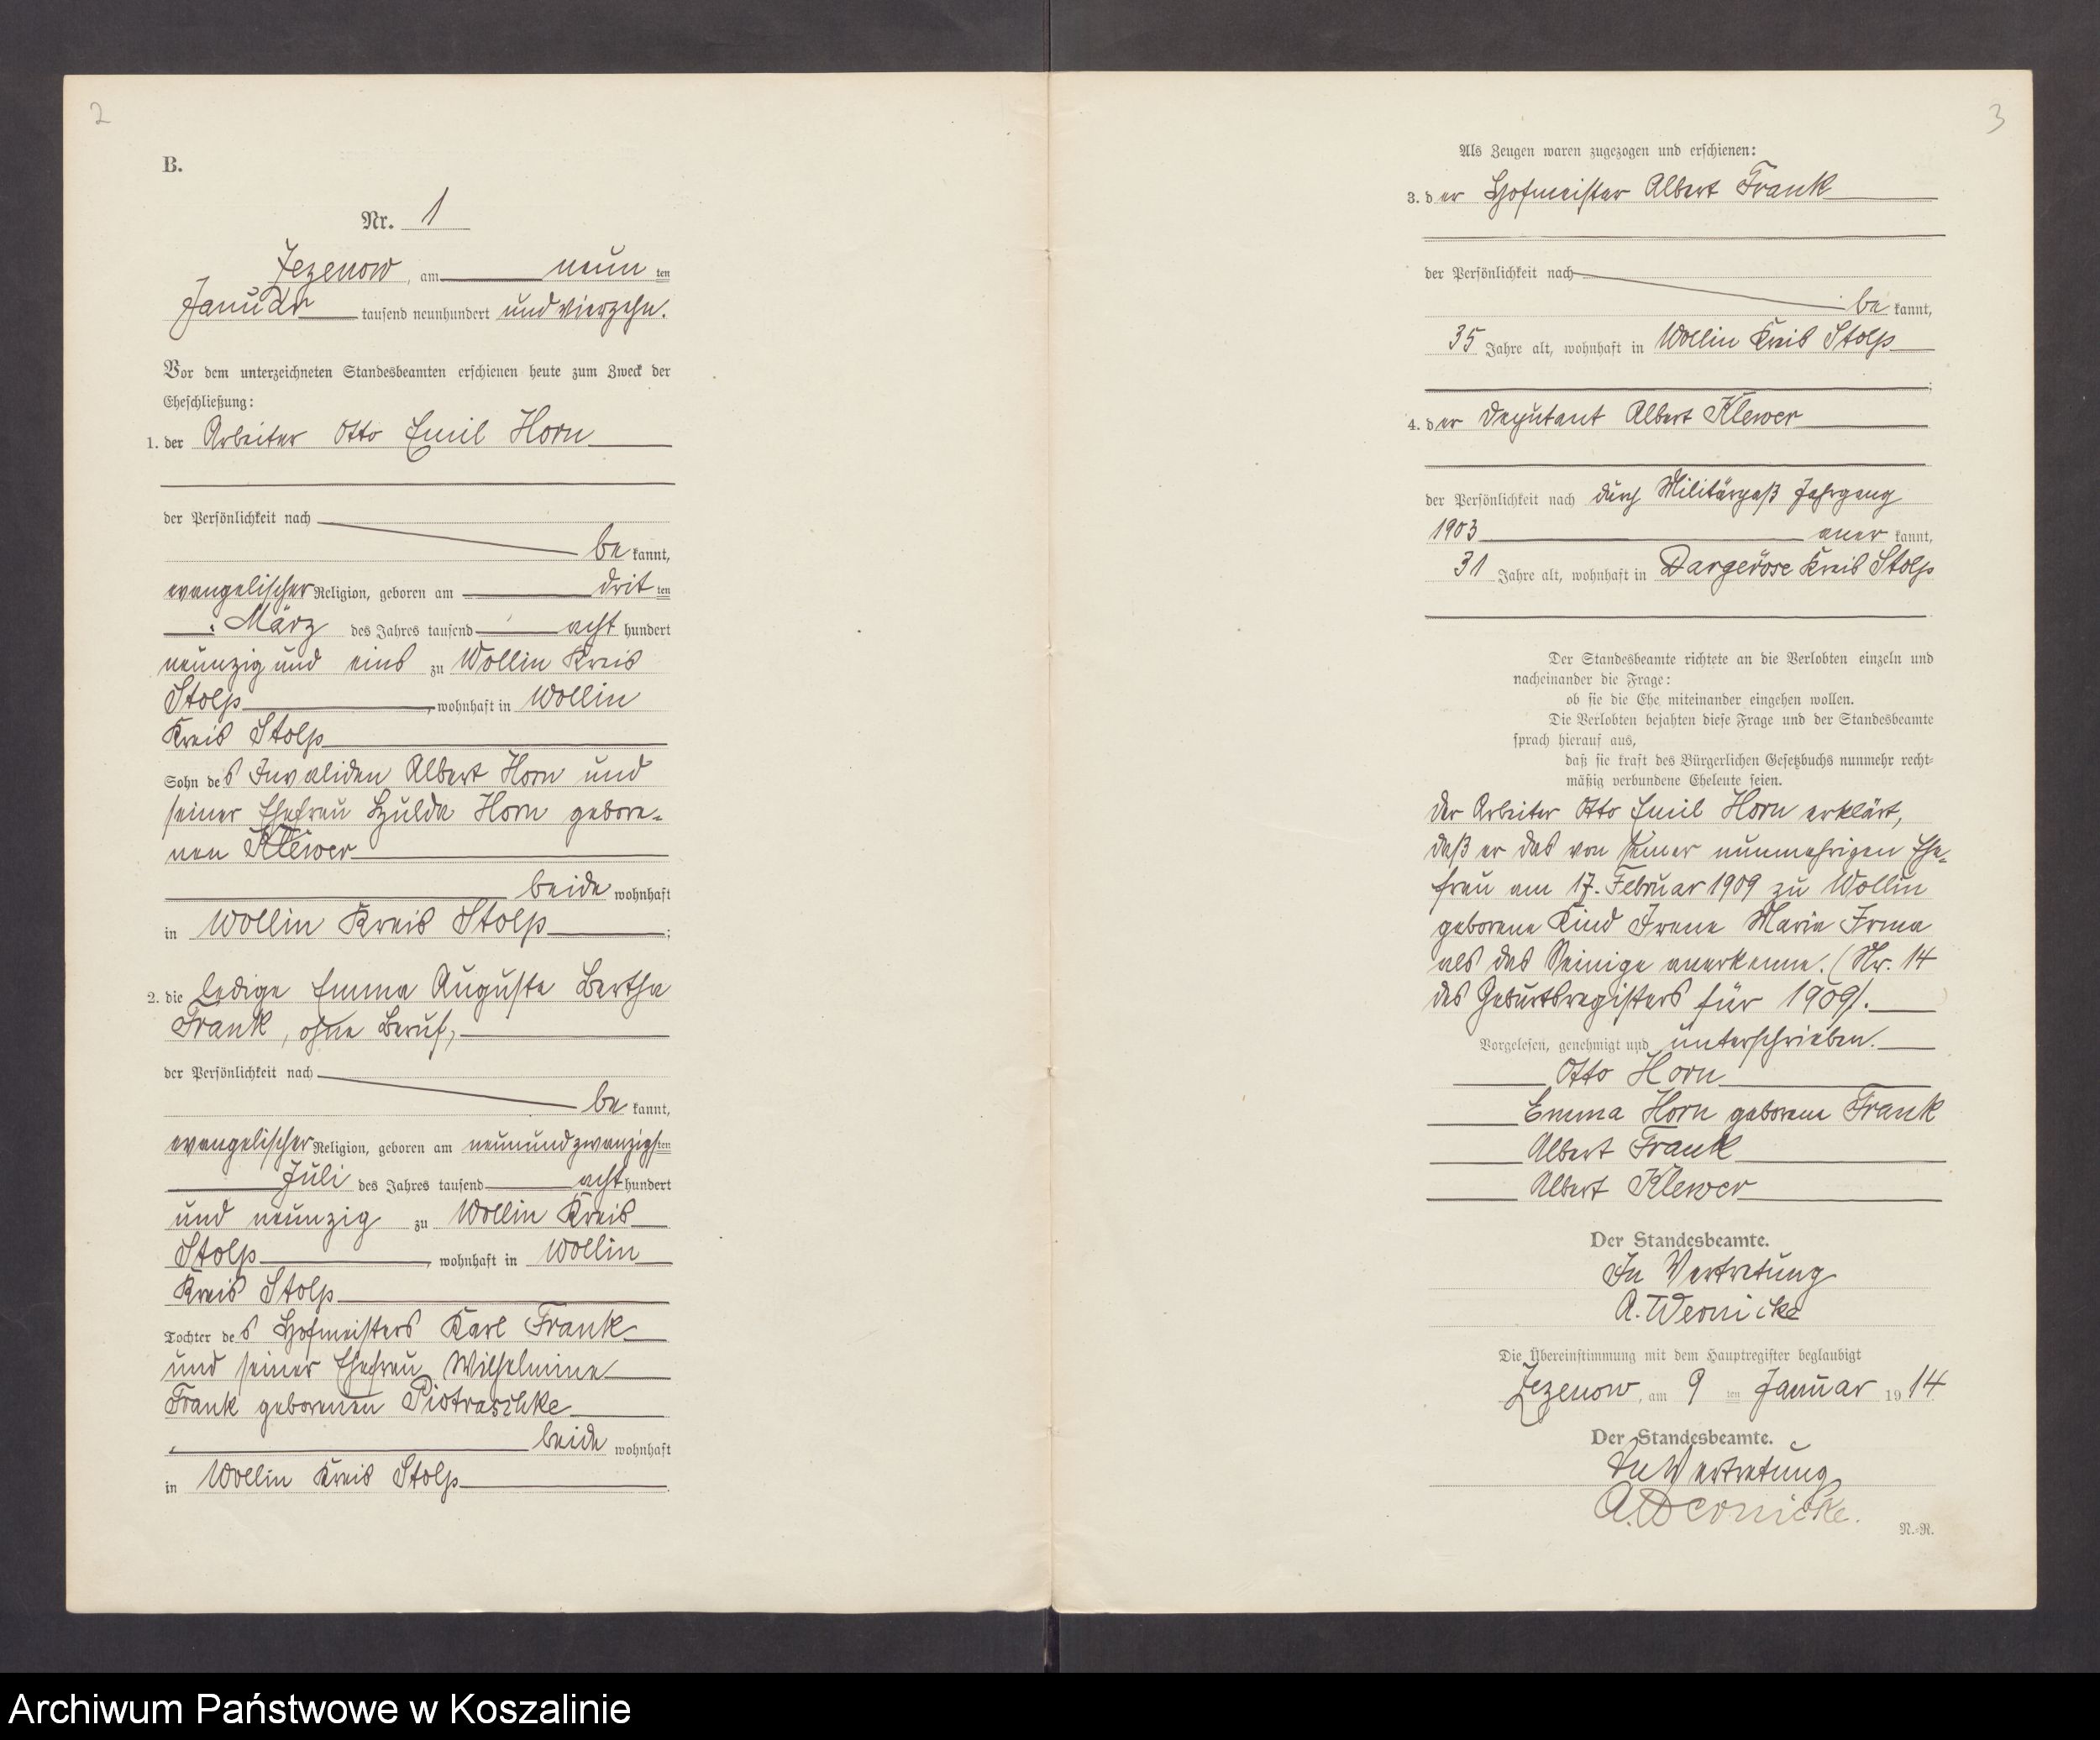 2
B.
Nr. 1
Zezenow, am neun ten
Januar tausend neunhundert und vierzehn.
Vor dem unterzeichneten Standesbeamten erschienen heute zum Zweck der
Eheschließung:
1. der Arbeiter Otto Emil Horn
der Persönlichkeit nach
be kannt,
evangelischer Religion, geboren am drit ten
März des Jahres tausend acht hundert
neunzig und eins zu Wollin Kreis
Stolp, wohnhaft in Wollin
Kreis Stolp
Sohn des Invaliden Albert Horn und
seiner Ehefrau Hulda Horn gebore-
nen Klewer
beide wohnhaft
in Wollin Kreis Stolp;
2. die ledige Emma Auguste Bertha
Frank, ohne Beruf,
der Persönlichkeit nach
be kannt,
evangelischer Religion, geboren am neunundzwanzigsten
Juli des Jahres tausend acht hundert
und neunzig zu Wollin Kreis
Stolp, wohnhaft in Wollin
Kreis Stolp
Tochter des Hofmeisters Karl Frank
und seiner Ehefrau Wilhelmine
Frank geborenen Piotraschke
beide wohnhaft
in Wollin Kreis Stolp.
3
Als Zeugen waren zugezogen und erschienen:
3. der Hofmeister Albert Frank
der Persönlichkeit nach
be kannt,
35 Jahre alt, wohnhaft in Wollin Kreis Stolp
;
4. der Deputant Albert Klewer
der Persönlichkeit nach durch Militärpaß Jahrgang
1903 aner kannt,
31 Jahre alt, wohnhaft in Dargeröse Kreis Stolp
Der Standesbeamte richtete an die Verlobten einzeln und
nacheinander die Frage:
ob sie die Ehe miteinander eingehen wollen.
Die Verlobten bejahten diese Frage und der Standesbeamte
sprach hierauf aus,
daß sie kraft des Bürgerlichen Gesetzbuchs nunmehr recht-
mäßig verbundene Eheleute seien.
Der Arbeiter Otto Emil Horn erklärt,
daß er das von seiner nunmehrigen Ehe-
frau am 17. Februar 1909 zu Wollin
geborene Kind Irene Maria Irma
als das Seinige anerkenne. (Nr. 14
des Geburtsregisters für 1909).
Vorgelesen, genehmigt und unterschrieben.
Otto Horn
Emma Horn geborene Frank
Albert Frank
Albert Klewer
Der Standesbeamte.
In Vertretung
A. Wernicke
Die Übereinstimmung mit dem Hauptregister beglaubigt
Zezenow, am 9 ten Januar 1914
Der Standesbeamte.
In Vertretung
A. Wernicke.
N.-R.
Archiwum Państwowe w Koszalinie